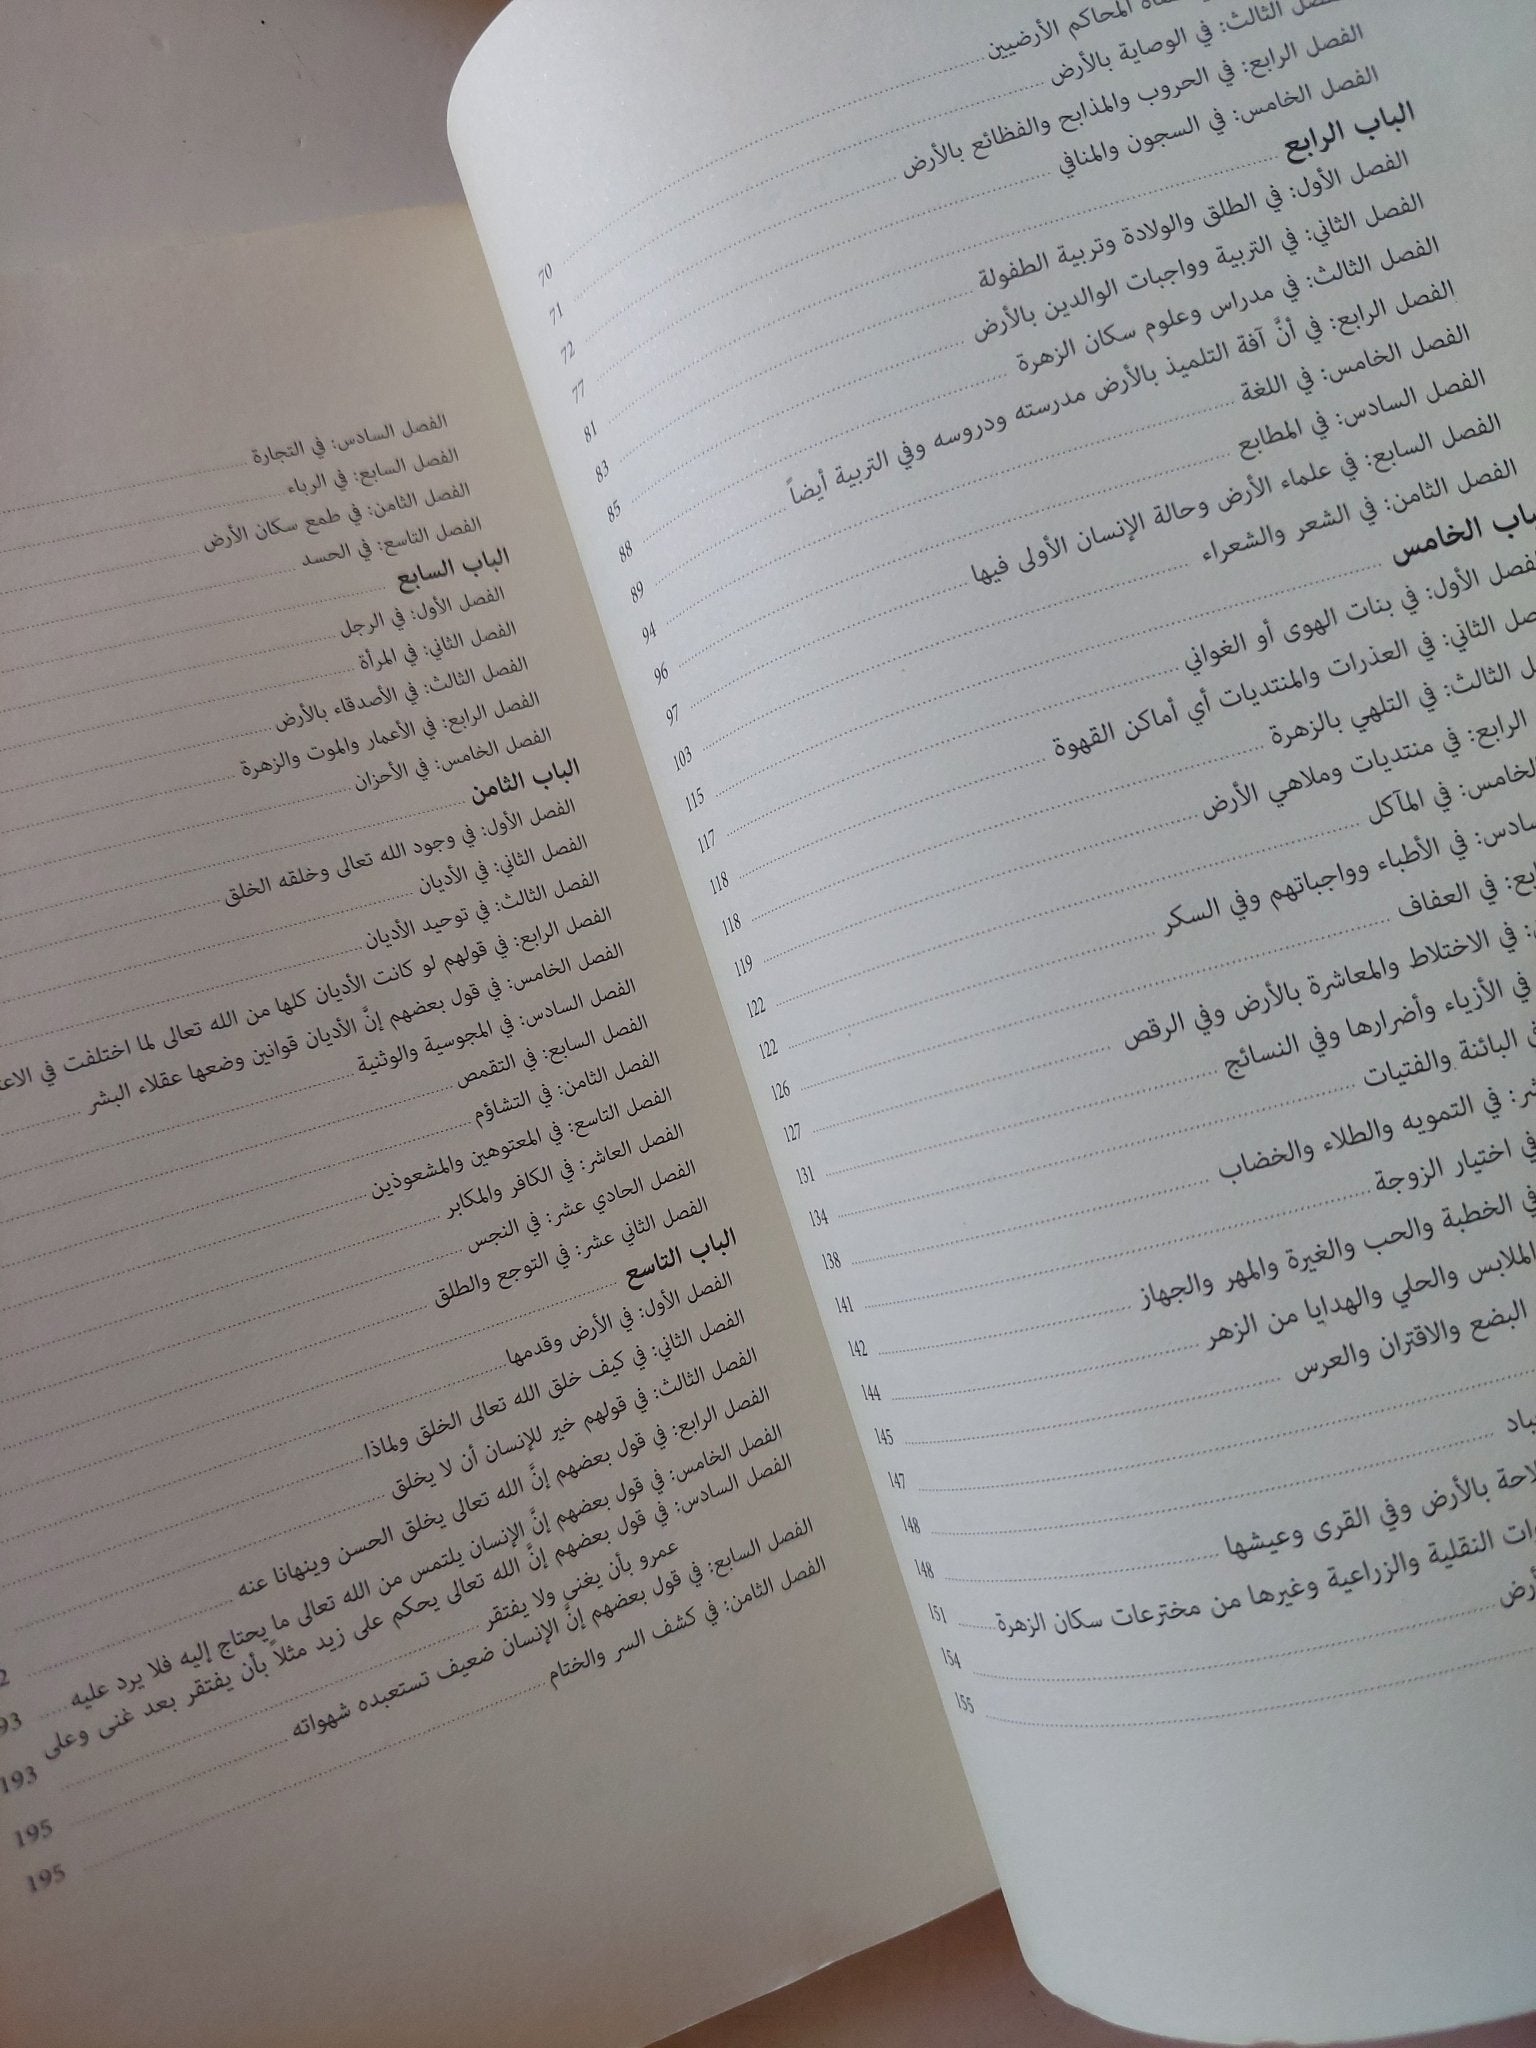 المحاكم الأرضيين 70
الفصل الثالث: في الوصاية بالأرض 71
الفصل الرابع: في الحروب والمذابح والفظائع بالأرض 72
الفصل الخامس: في السجون والمنافي 77
الباب الرابع 81
الفصل الأول: في الطلق والولادة وتربية الطفولة 83
الفصل الثاني: في التربية وواجبات الوالدين بالأرض 85
الفصل الثالث: في مدراس وعلوم سكان الزهرة 88
الفصل الرابع: في أنَّ آفة التلميذ بالأرض مدرسته ودروسه وفي التربية أيضاً 89
الفصل الخامس: في اللغة 94
الفصل السادس: في المطابع 96
الفصل السابع: في علماء الأرض وحالة الإنسان الأولى فيها 97
الفصل الثامن: في الشعر والشعراء 103
الخامس 115
الأول: في بنات الهوى أو الغواني 117
الثاني: في العذرات والمنتديات أي أماكن القهوة 118
الثالث: في التلهي بالزهرة 118
الرابع: في منتديات وملاهي الأرض 119
الخامس: في المآكل 122
في الأطباء وواجباتهم وفي السكر 122
في العفاف 126
في الاختلاط والمعاشرة بالأرض وفي الرقص 127
في الأزياء وأضرارها وفي النسائج 131
البائنة والفتيات 134
في التمويه والطلاء والخضاب 138
في اختيار الزوجة 141
في الخطبة والحب والغيرة والمهر والجهاز 142
الملابس والحلي والهدايا من الزهر 144
البضع والاقتران والعرس 145
147
148
بالأرض وفي القرى وعيشها 148
النقلية والزراعية وغيرها من مخترعات سكان الزهرة 151
154
155
الفصل السادس: في التجارة
الفصل السابع: في الرباء
الفصل الثامن: في طمع سكان الأرض
الفصل التاسع: في الحسد
الباب السابع
الفصل الأول: في الرجل
الفصل الثاني: في المرأة
الفصل الثالث: في الأصدقاء بالأرض
الفصل الرابع: في الأعمار والموت والزهرة
الفصل الخامس: في الأحزان
الباب الثامن
الفصل الأول: في وجود الله تعالى وخلقه الخلق
الفصل الثاني: في الأديان
الفصل الثالث: في توحيد الأديان
الفصل الرابع: في قولهم لو كانت الأديان كلها من الله تعالى لما اختلفت في
الفصل الخامس: في قول بعضهم إنَّ الأديان قوانين وضعها عقلاء البشر
الفصل السادس: في المجوسية والوثنية
الفصل السابع: في التقمص
الفصل الثامن: في التشاؤم
الفصل التاسع: في المعتوهين والمشعوذين
الفصل العاشر: في الكافر والمكابر
الفصل الحادي عشر: في النجس
الفصل الثاني عشر: في التوجع والطلق
الباب التاسع
الفصل الأول: في الأرض وقدمها
الفصل الثاني: في كيف خلق الله تعالى الخلق ولماذا
الفصل الثالث: في قولهم خير للإنسان أن لا يخلق
الفصل الرابع: في قول بعضهم إنَّ الله تعالى يخلق الحسن وينهانا عنه
الفصل الخامس: في قول بعضهم إنَّ الإنسان يلتمس من الله تعالى ما يحتاج إليه فلا يرد عليه
الفصل السادس: في قول بعضهم إنَّ الله تعالى يحكم على زيد مثلاً بأن يفتقر بعد غنى وعلى
عمرو بأن يغنى ولا يفتقر 193
الفصل السابع: في قول بعضهم إنَّ الإنسان ضعيف تستعبده شهواته 195
الفصل الثامن: في كشف السر والختام 195